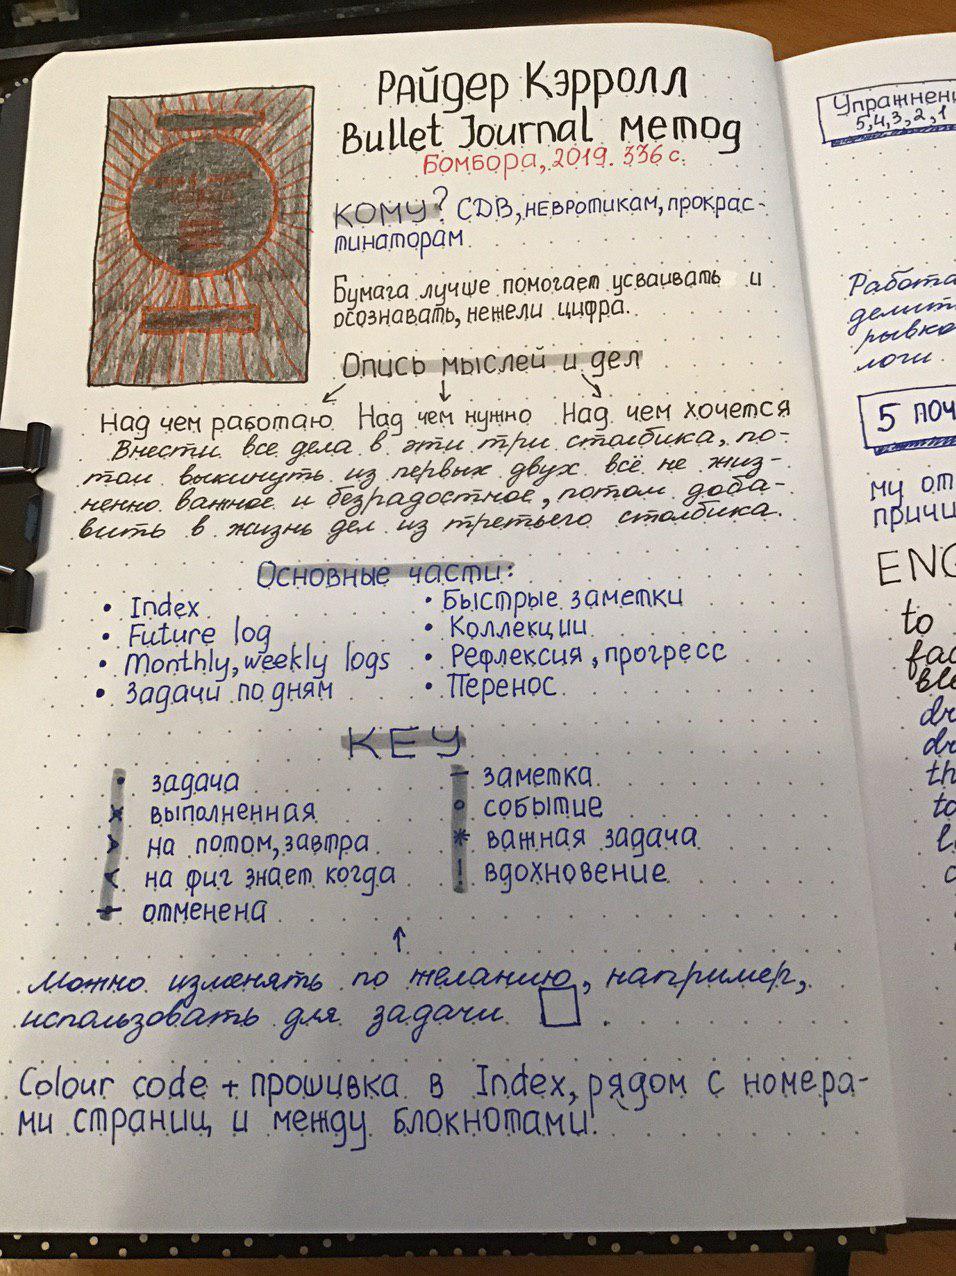 Райдер Кэрролл
Bullet Journal метод
Бомбора, 2019. 336 с.
Кому? СДВ, невротикам, прокрас-
тинаторам
Бумага лучше помогает усваивать и
осознавать, нежели цифра.
Опись мыслей и дел
Над чем работаю Над чем нужно Над чем хочется
Внести все дела в эти три столбика, по-
том выкинуть из первых двух всё не жиз-
ненно важное и безрадостное, потом доба-
вить в жизнь дел из третьего столбика.
Основные части:
• Index
• Future log
• Monthly, weekly logs
• Задачи по дням
• Быстрые заметки
• Коллекции
• Рефлексия, прогресс
• Перенос
KEY
• задача
× выполненная
> на потом, завтра
< на фиг знает когда
отменена
– заметка
о событие
* важная задача
! вдохновение
Можно изменять по желанию, например,
использовать для задачи □.
Colour code + прошивка в Index, рядом с номера-
ми страниц и между блокнотами!
Упражнени
5, 4, 3, 2, 1
Работа
делит
рывко
логи
5 поч
му от
причи
ENG
to
fac
ble
dr
dr
th
to